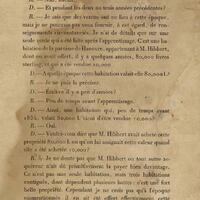 D. — Et pendant les deux ou trois années précédentes?
R. — Je sais que des ventes ont eu lieu à cette époque,
mais je ne pourrais pas vous fournir, à cet égard, de ren-
seignements circonstanciés. Je n'ai de détails que sur une
seule vente qui a été faite après l'apprentissage. C'est une ha-
bitation de la paroisse de Hanovre, appartenant à M. Hibbert,
dont on avait offert, il y a quelques années, 80,000 livres
sterling, et qui a été vendue 10,000
D. — A quelle époque cette habitation valait-elle 80,000 l.?
R. — Je ne puis le préciser.
D. — Était-ce il y a peu d'années?
R. — Peu de temps avant l'apprentissage.
D. — Ainsi, une habitation qui, peu de temps avant
1834, valait 80,000 l. vient d'être vendue 10,000?
R. — Oui.
D. — Voulez-vous dire que M. Hibbert avait acheté cette
propriété 80,000 l. ou qu'on assignait cette valeur quand
elle a été achetée 10,000?
R. — Je ne doute pas que M. Hibbert ou tout autre ac-
quéreur n'ait dû primitivement la payer bien davantage.
Ce n'est pas une seule habitation, mais trois habitations
contiguës, dont dépendent plusieurs hattes; c'est une fort
belle propriété. Cependant je ne crois pas qu'à l'époque